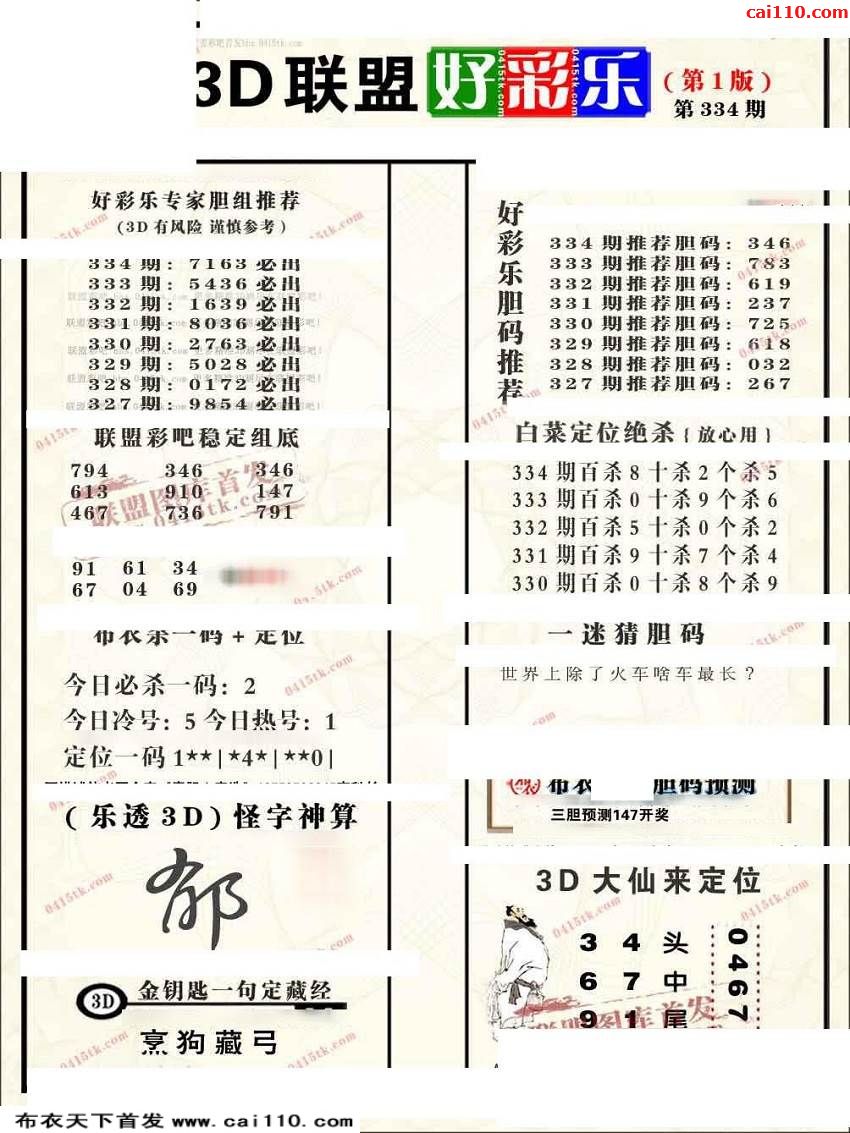 cai110.com
3D联盟 好彩乐 (第1版)
第334期
好彩乐专家胆组推荐
(3D有风险 谨慎参考)
334期: 7163必出
333期: 5436必出
332期: 1639必出
331期: 8036必出
330期: 2763必出
329期: 5028必出
328期: 0172必出
327期: 9854必出
联盟彩吧稳定组底
794 346 346
613 910 147
467 736 791
91 61 34
67 04 69
布衣杀一码+定位
今日必杀一码: 2
今日冷号: 5 今日热号: 1
定位一码 1**|*4*|**0|
(乐透3D)怪字神算
郁
3D 金钥匙一句定藏经
烹狗藏弓
好彩乐胆码推荐
334期推荐胆码: 346
333期推荐胆码: 783
332期推荐胆码: 619
331期推荐胆码: 237
330期推荐胆码: 725
329期推荐胆码: 618
328期推荐胆码: 032
327期推荐胆码: 267
白菜定位绝杀{放心用}
334期百杀8十杀2个杀5
333期百杀0十杀9个杀6
332期百杀5十杀0个杀2
331期百杀9十杀7个杀4
330期百杀0十杀8个杀9
一迷猜胆码
世界上除了火车啥车最长?
布衣 胆码预测
三胆预测147开奖
3D大仙来定位
3 4 头
6 7 中
9 1 尾
0467
联盟图库首发
0415tk.com
布衣天下首发 www.cai110.com